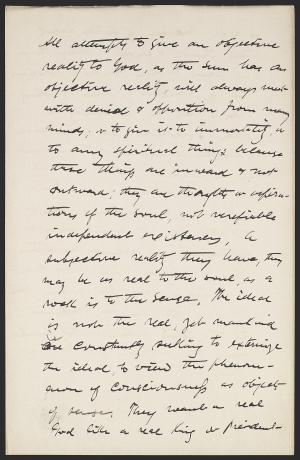 All attempts to give an objective
reality to God, as the sun has an
objective reality, will always meet
with denial & opposition from many
minds; & to give it to immortality, or
to any spiritual things; because
these things are inward & not
outward; they are thoughts or aspira-
tions of the soul, not verifiable
independent existences. A
subjective reality they have, they
may be as real to the soul, as a
rock is to the sense. The ideal
is not the real, yet mankind
are constantly seeking to externize
the ideal, to view the phenom-
enon of consciousness as object
of senses. They want a real
God like a real King or President-